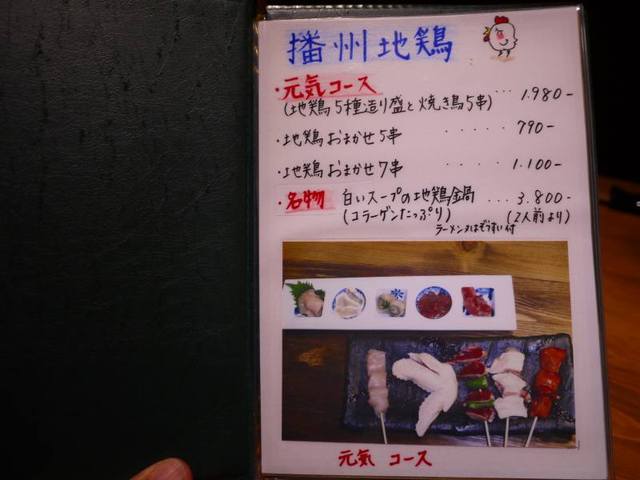 播州地鶏
・元気コース ... 1.980-
(地鶏5種造り盛と焼き鳥5串)
・地鶏おまかせ5串 ..... 790-
・地鶏おまかせ7串 ..... 1.100-
・名物 白いスープの地鶏鍋 ... 3.800-
(コラーゲンたっぷり) (2人前より)
ラーメン又はぞうすい付
元気 コース